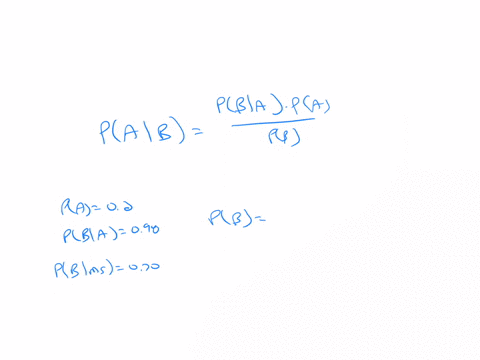 P(A|B) = P(B|A).P(A)
P(B)
P(A)=0.2
P(B|A)=0.90
P(B)=
P(B|ms)=0.70